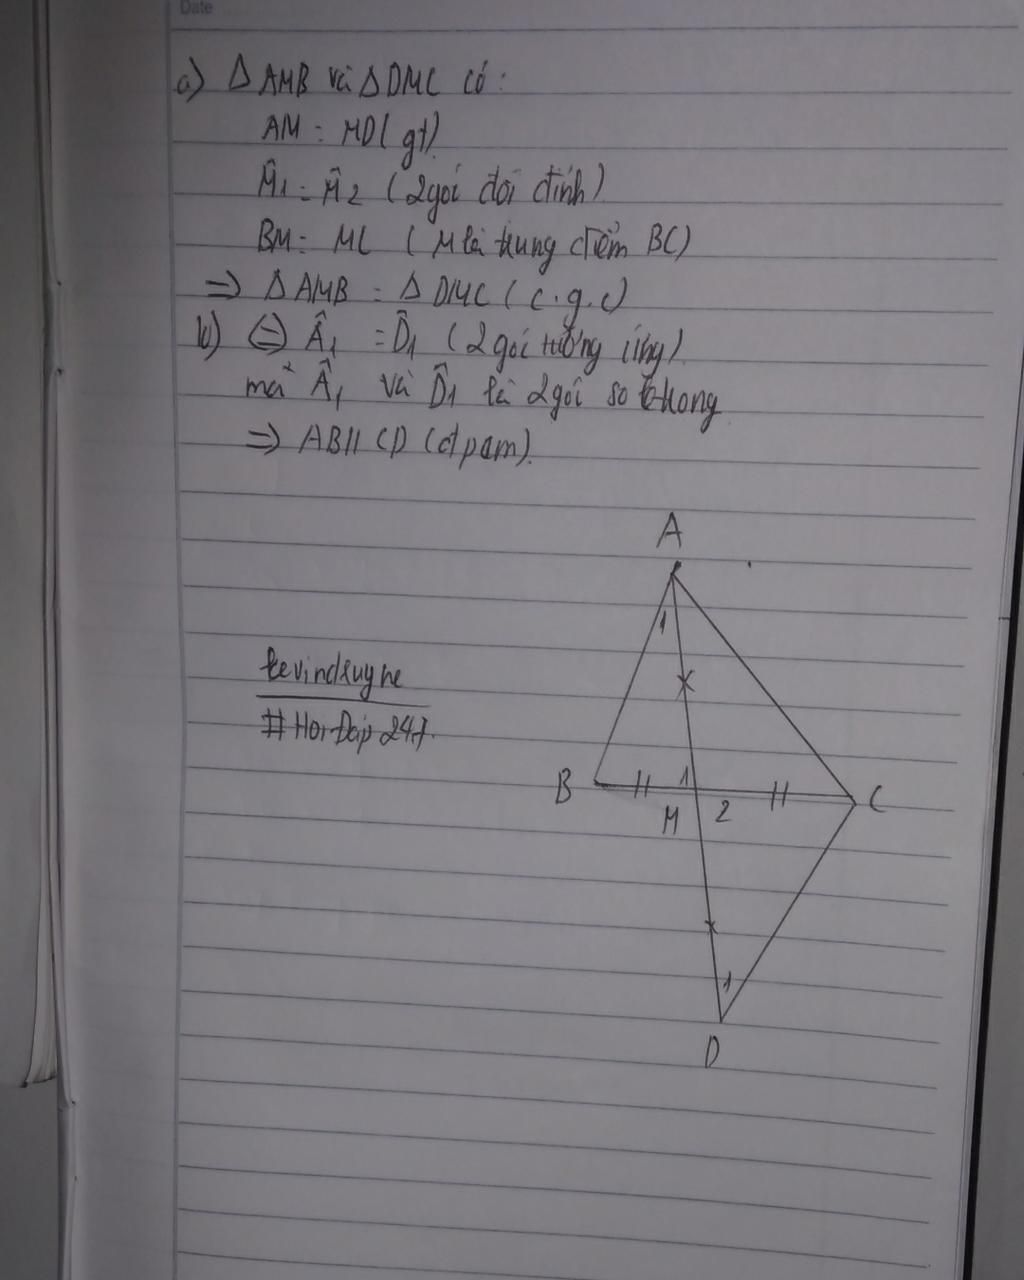 Date
a) Δ AMB và Δ DMC có :
AM = MD ( gt)
M̂1 = M̂2 ( 2 gói đối đỉnh )
BM = MC ( M là trung điểm BC)
=> Δ AMB = Δ DMC ( c.g.c)
b) (=) Â1 = D̂1 ( 2 gói tương ứng)
mà Â1 và D̂1 là 2 gói so le trong
=> AB // CD (đpcm).
A
1
kevindxuyne
# Hoi Đáp 247.
B
1
C
M
2
1
D